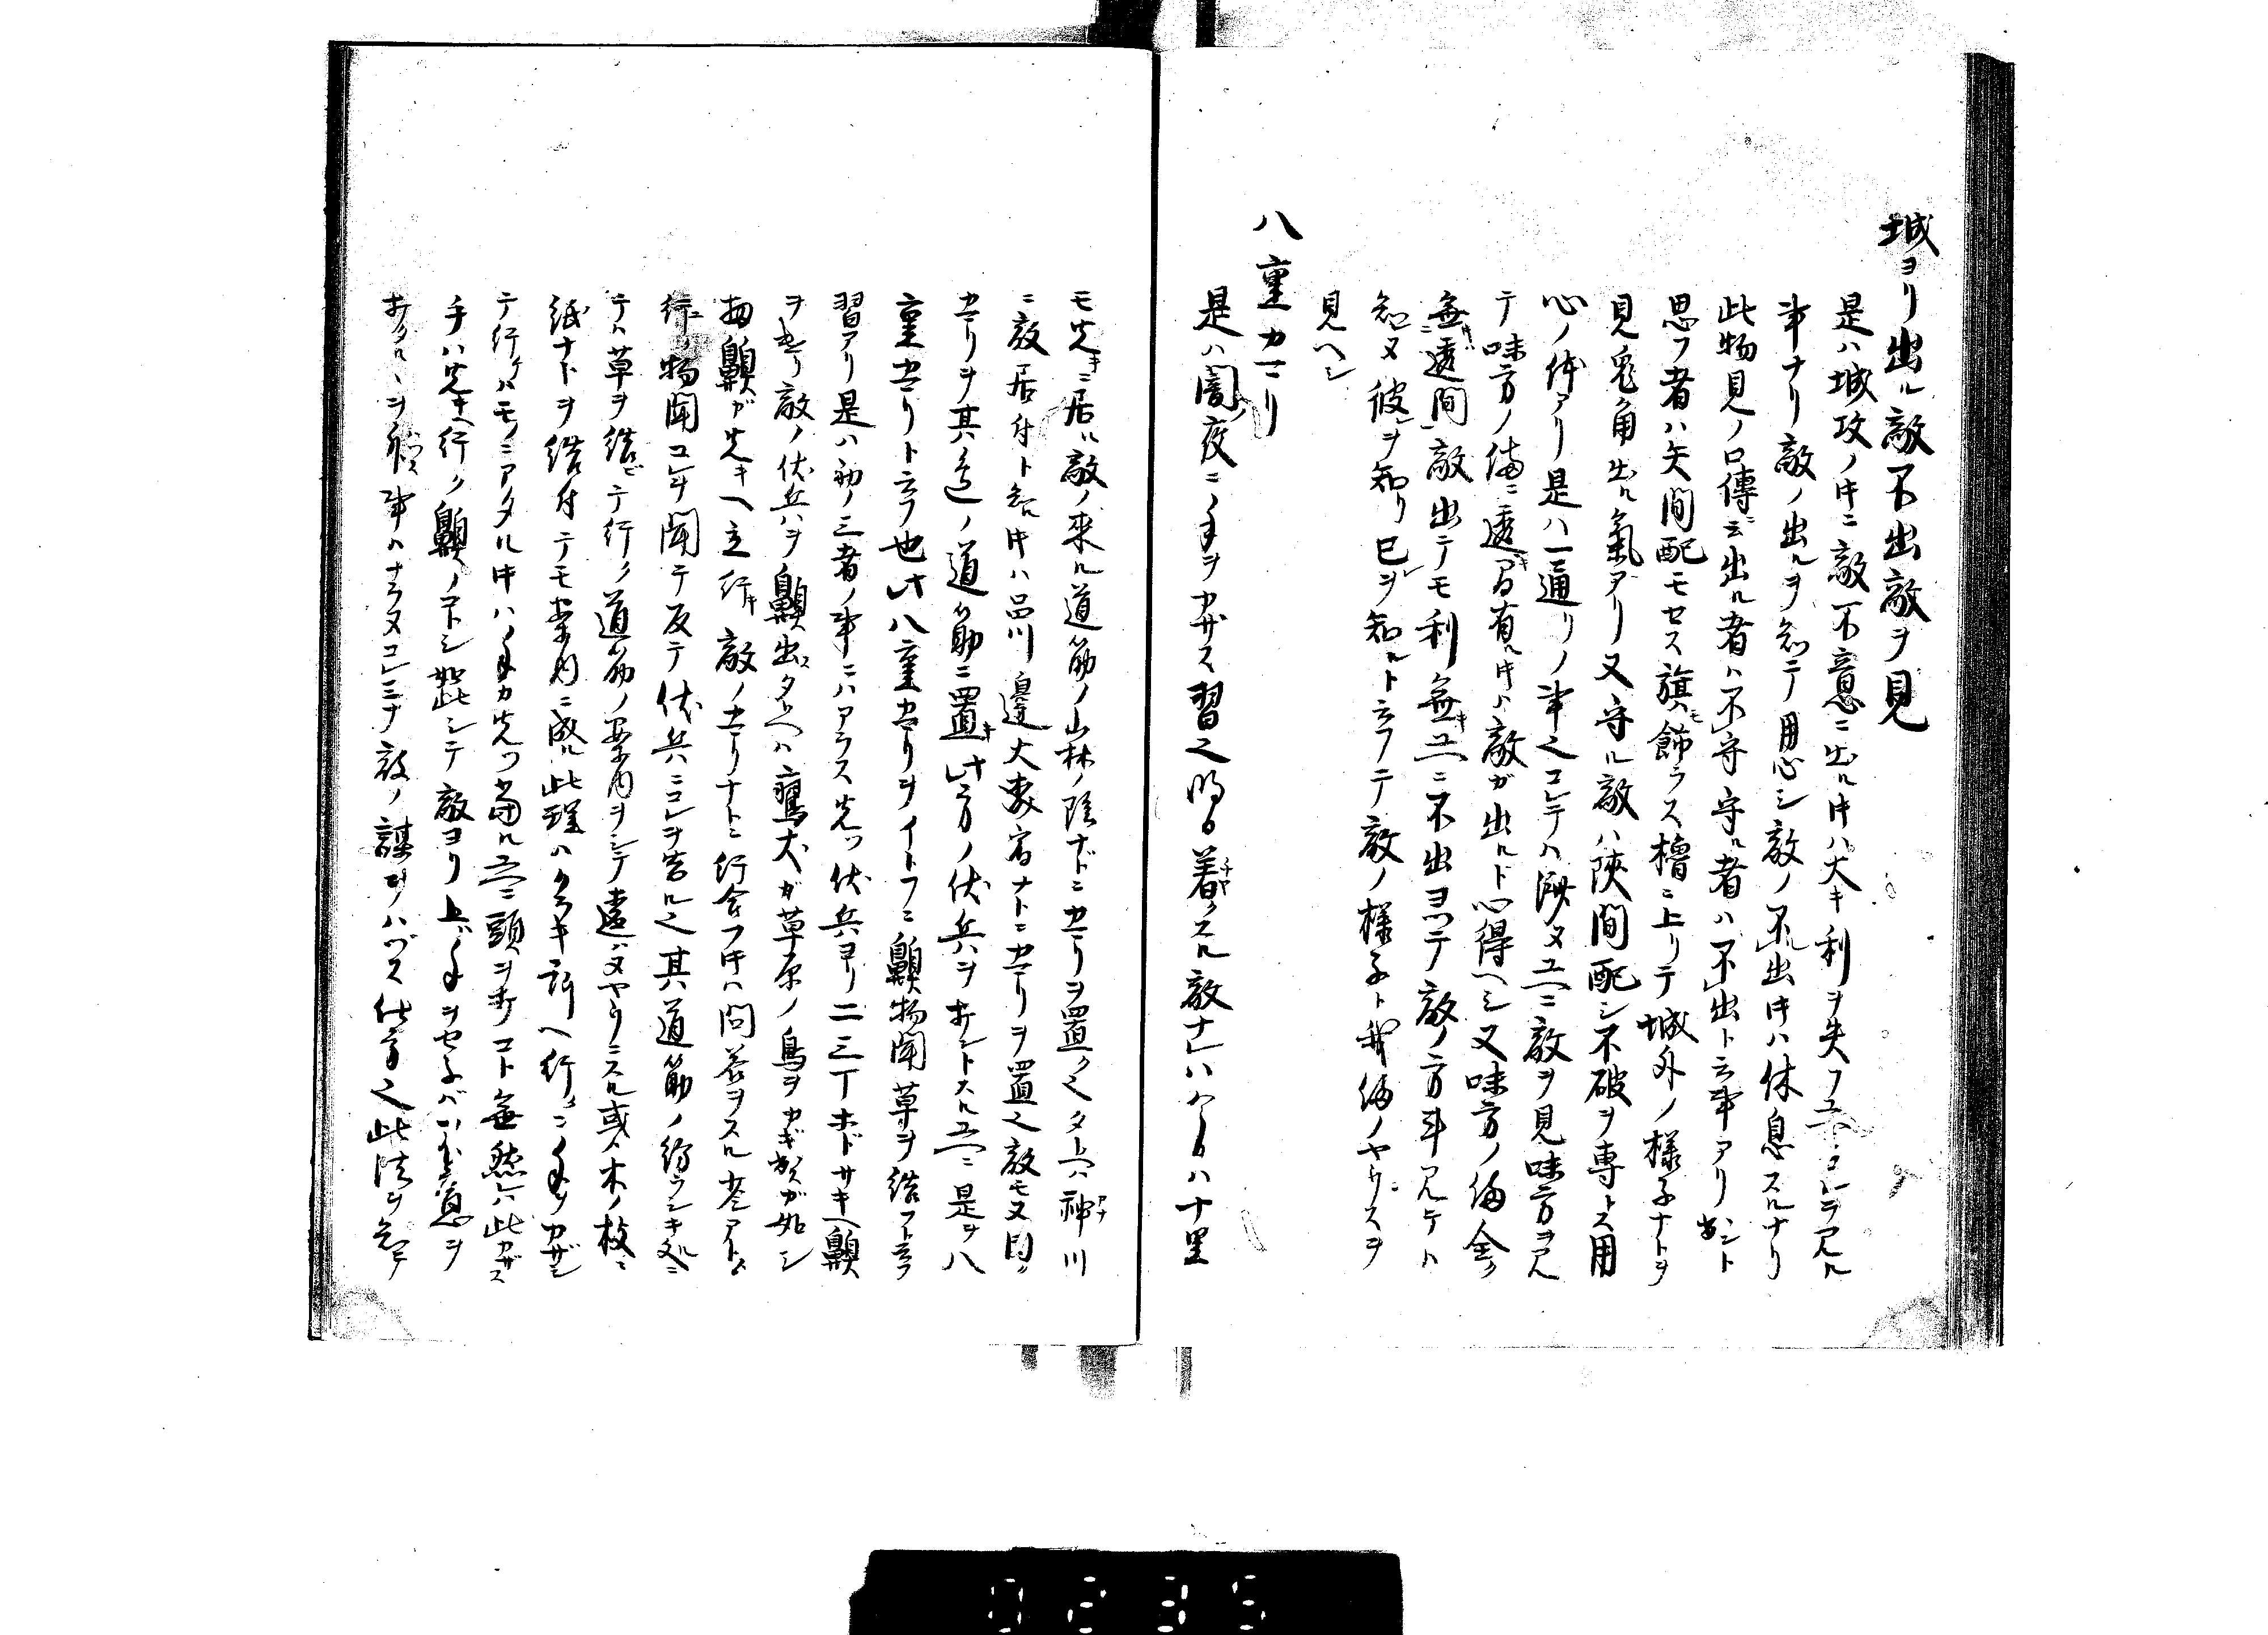 城ヨリ出ル敵不出敵ヲ見
是ハ城攻ノ時ニ敵不意ニ出ル時ハ大キ利ヲ失フ
事ナリ敵ノ出ルヲ知テ用心シ敵ノ不出時ハ休息スルナリ
此物見ノ口傳ニ云出ル者ハ不守守ル者ハ不出ト云事アリ出ント
思フ者ハ矢間配モセス旗モ飾ラス櫓ニ上リテ城外ノ様子ナトヲ
見兎角出ル氣アリ又守ル敵ハ陜間配シ不破ヲ専トス用
心ノ体アリ是ハ一通リノ事也コレテハ済ヌユヘニ敵ヲ見味方ヲ見
テ味方ノ備ニ透間有ル時ハ敵ガ出ルト心得ヘシ又味方ノ備全ク
無透間敵出テモ利無キユヘニ不出ヨツテ敵ノ方斗見テハ
知ヌ彼ヲ知リ己ヲ知ルト云フテ敵ノ様子ト我備ノヤウスヲ
見ヘシ
八重カマリ
是ハ闇夜ニ手ヲカザス習也明日着スル敵ナレハ今日ハ十里
モ先キニ居ル敵ノ來ル道筋ノ山林ノ陰ナドニカマリヲ置ク也タトヘハ神川
ニ敵居付ト知ル時ハ品川邊大森宿ナトニカマリヲ置也敵モ又同ク
カマリヲ其邊ノ道筋ニ置キ此方ノ伏兵ヲ討ントスルユヘニ是ヲ八
重カマリト云フ也此八重カマリヲイトフニ齅物聞草ヲ結フト云フ
習アリ是ハ別ノ三者ノ事ニハアラス先ツ伏兵ヨリ二三丁ホドサキヘ齅
ヲ遣リ敵ノ伏兵ヲ齅出スタトヘハ鷹犬ガ草原ノ鳥ヲカギ出スガ如シ
扨齅ガ先キヘ立行キ敵ノカマリナトニ行會フ時ハ問答ヲスル
物聞コレヲ聞テ反テ伏兵ニコレヲ告ル也其道筋ノ紛ラシキ処ニ
テハ草ヲ結ビテ行ク道筋ノ案内ヲシテ違ハヌヤウニスル或ハ木ノ枝ニ
紙ナトヲ結付テモ案内ニ成ル此理ハクラキ所ヘ行クニ手ヲカザシ
テ行ケハモノニアタル時ハ手カ先ツ當ルユヘニ頭ヲ打ツコト無然ハ此カザス
手ハ先キヘ行ク齅ノコトシ如此シテ敵ヨリ
事ハナラヌコレミナ敵ノ謀ヲハヅス仕方也此法ヲ知テ